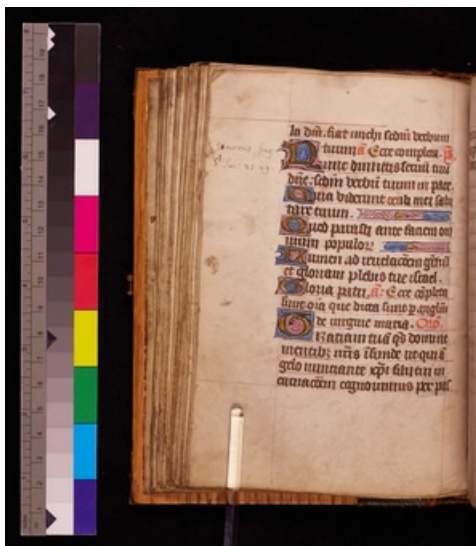 la dm̄. fiat michi scdm̄ verbum
tuum a Ecce completa. ps
Nunc dimittis seruū tuū
dn̄e. scdm̄ verbū tuum in pace.
Quia viderunt oculi mei salu
tare tuum.
Quod parasti ante faciem om̄
nium populoꝝ.
Lumen ad reuelacōem gentiū
et gloriam plebis tue israel.
Gloria patri. a. Ecce cōpleta
sunt oīa que dicta sunt p angelū
de virgine maria. Or̄o.
Gratiam tuā q̄s domine
mentibꝫ nr̄is ifunde ut qui ā
gelo nunciante xp̄i filii tui in
carnacōem cognouimus per pas